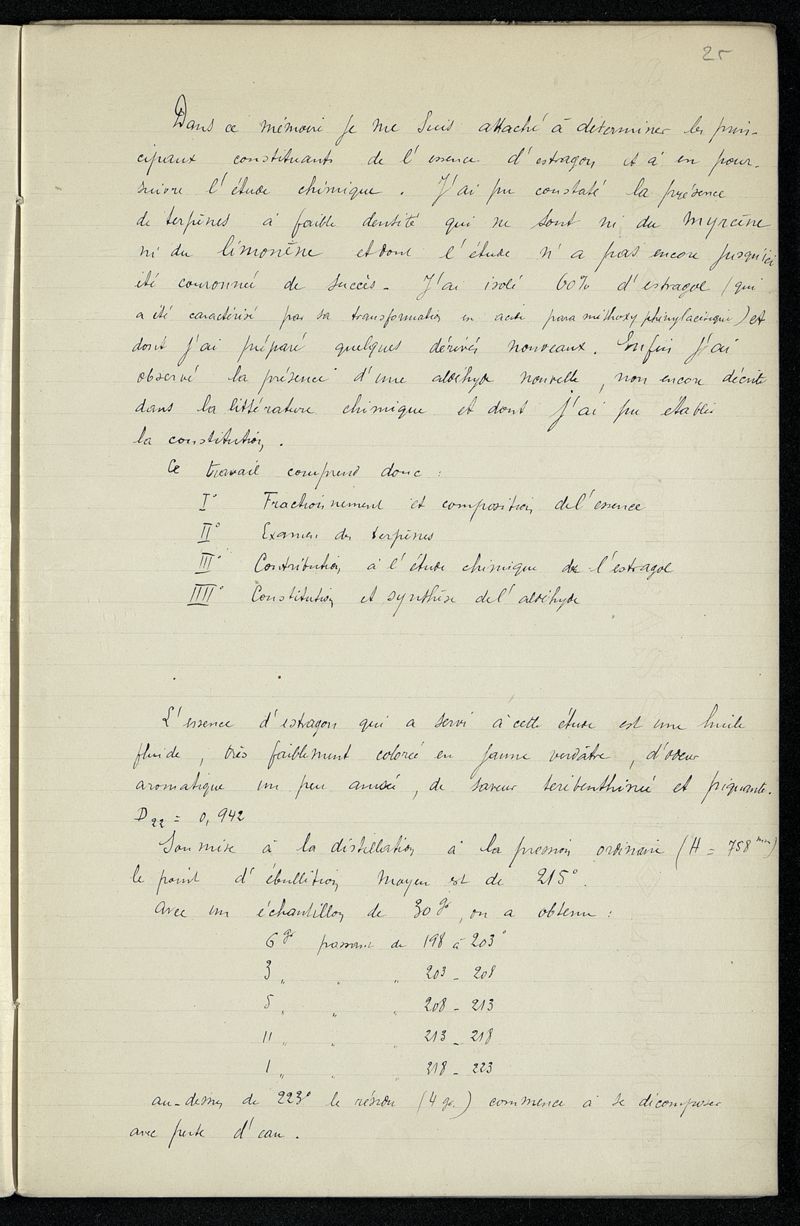 25
Dans ce mémoire je me suis attaché à déterminer les prin-
cipaux constituants de l'essence d'estragon et à en pour-
suivre l'étude chimique. J'ai pu constaté la présence
de terpènes à faible densité qui ne sont ni du myrcène
ni du limonène et dont l'étude n'a pas encore jusqu'ici
été couronnée de succès. J'ai isolé 60% d'estragol (qui
a été caractérisé par sa transformation en acide paraméthoxyphénylacétique) et
dont j'ai préparé quelques dérivés nouveaux. Enfin j'ai
observé la présence d'une aldéhyde nouvelle, non encore décrite
dans la littérature chimique et dont j'ai pu établir
la constitution.
Ce travail comprend donc :
I° Fractionnement et composition de l'essence
II° Examen des terpènes
III° Contribution à l'étude chimique de l'estragol
IIII° Constitution et synthèse de l'aldéhyde
L'essence d'estragon qui a servi à cette étude est une huile
fluide, très faiblement colorée en jaune verdâtre, d'odeur
aromatique un peu anisée, de saveur térébenthinée et piquante.
D22 = 0,942
Soumise à la distillation à la pression ordinaire (H = 758 mm)
le point d'ébullition moyen est de 215°.
Avec un échantillon de 30 gr, on a obtenu :
6 gr passant de 198 à 203°
3 " " " 203 - 208
5 " " " 208 - 213
11 " " " 213 - 218
1 " " " 218 - 223
au-dessus de 223° le résidu (4 gr.) commence à se décomposer
avec perte d'eau.